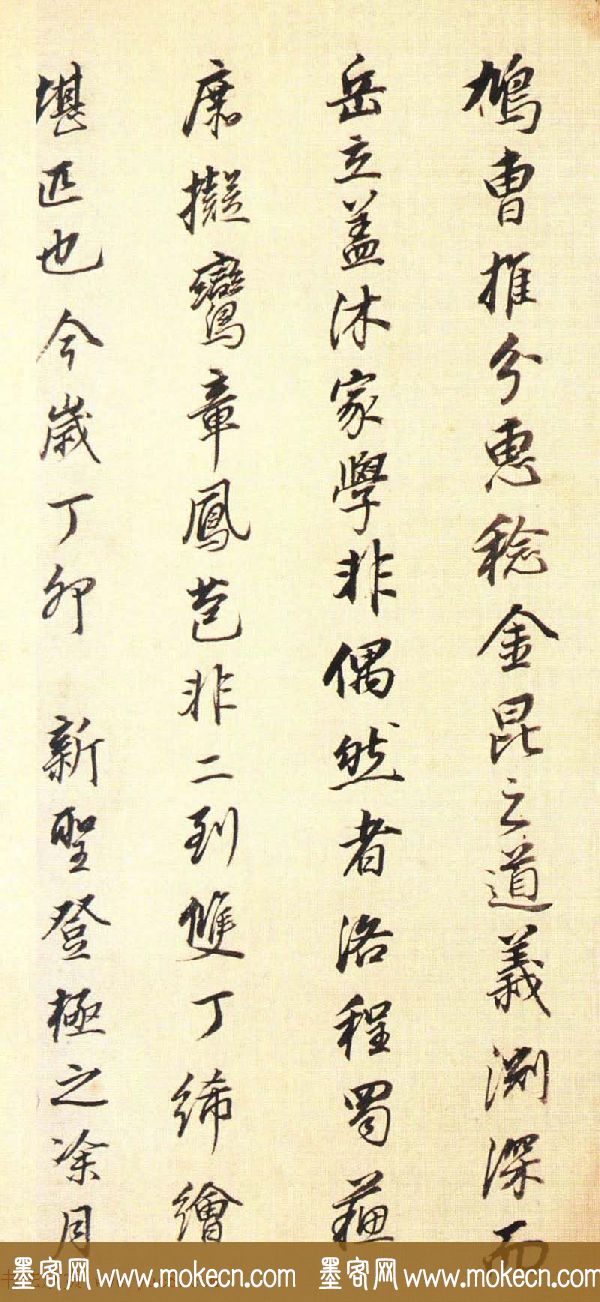 鳩曹推分惠稔金昆之道義淵深而
岳立盖沐家學非偶然者洛程蜀蘓
庶擬鸞章鳳苞非二到雙丁絺繪
堪匹也今歲丁卯 新聖登極之涂月
墨客网 www.mokecn.com 墨客网 www.mokecn.com